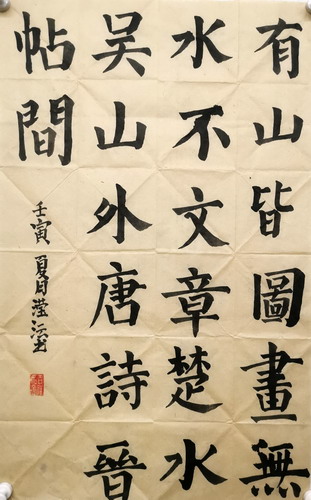 有山皆圖畫無
水不文章楚水
吳山外唐詩晉
帖間
壬寅夏月瀅沄書